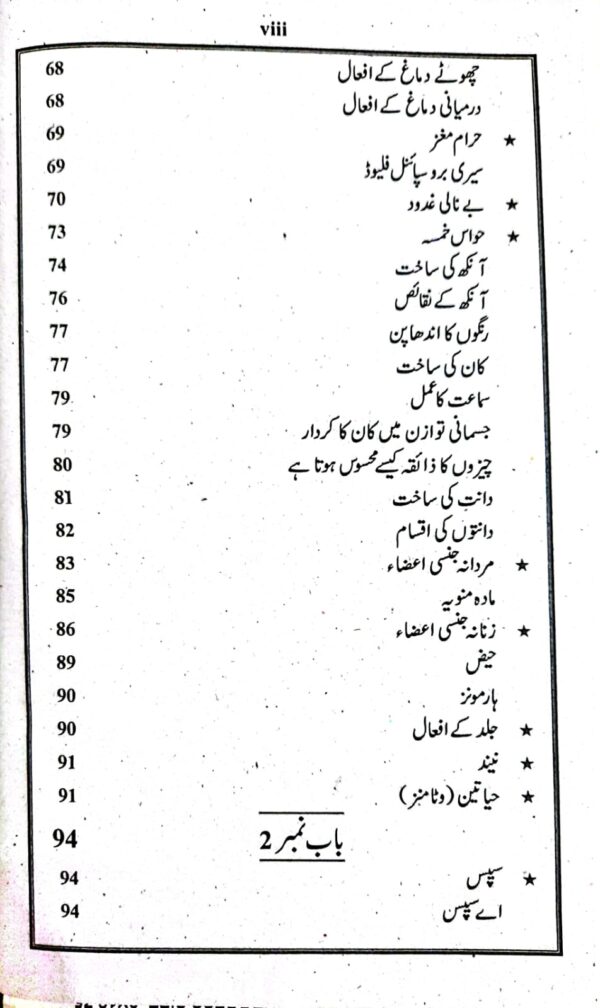 viii
چھوٹے دماغ کے افعال 68
درمیانی دماغ کے افعال 68
★ حرام مغز 69
سیری برو سپائنل فلیوڈ 69
★ بے نالی غدود 70
★ حواس خمسہ 73
آنکھ کی ساخت 74
آنکھ کے نقائص 76
رنگوں کا اندھا پن 77
کان کی ساخت 77
سماعت کا عمل 79
جسمانی توازن میں کان کا کردار 79
چیزوں کا ذائقہ کیسے محسوس ہوتا ہے 80
دانت کی ساخت 81
دانتوں کی اقسام 82
★ مردانہ جنسی اعضاء 83
مادہ منویہ 85
★ زنانہ جنسی اعضاء 86
حیض 89
ہارمونز 90
★ جلد کے افعال 90
★ نیند 91
★ حیاتین (وٹامنز) 91
باب نمبر 2 94
★ سپسس 94
اے سپسس 94